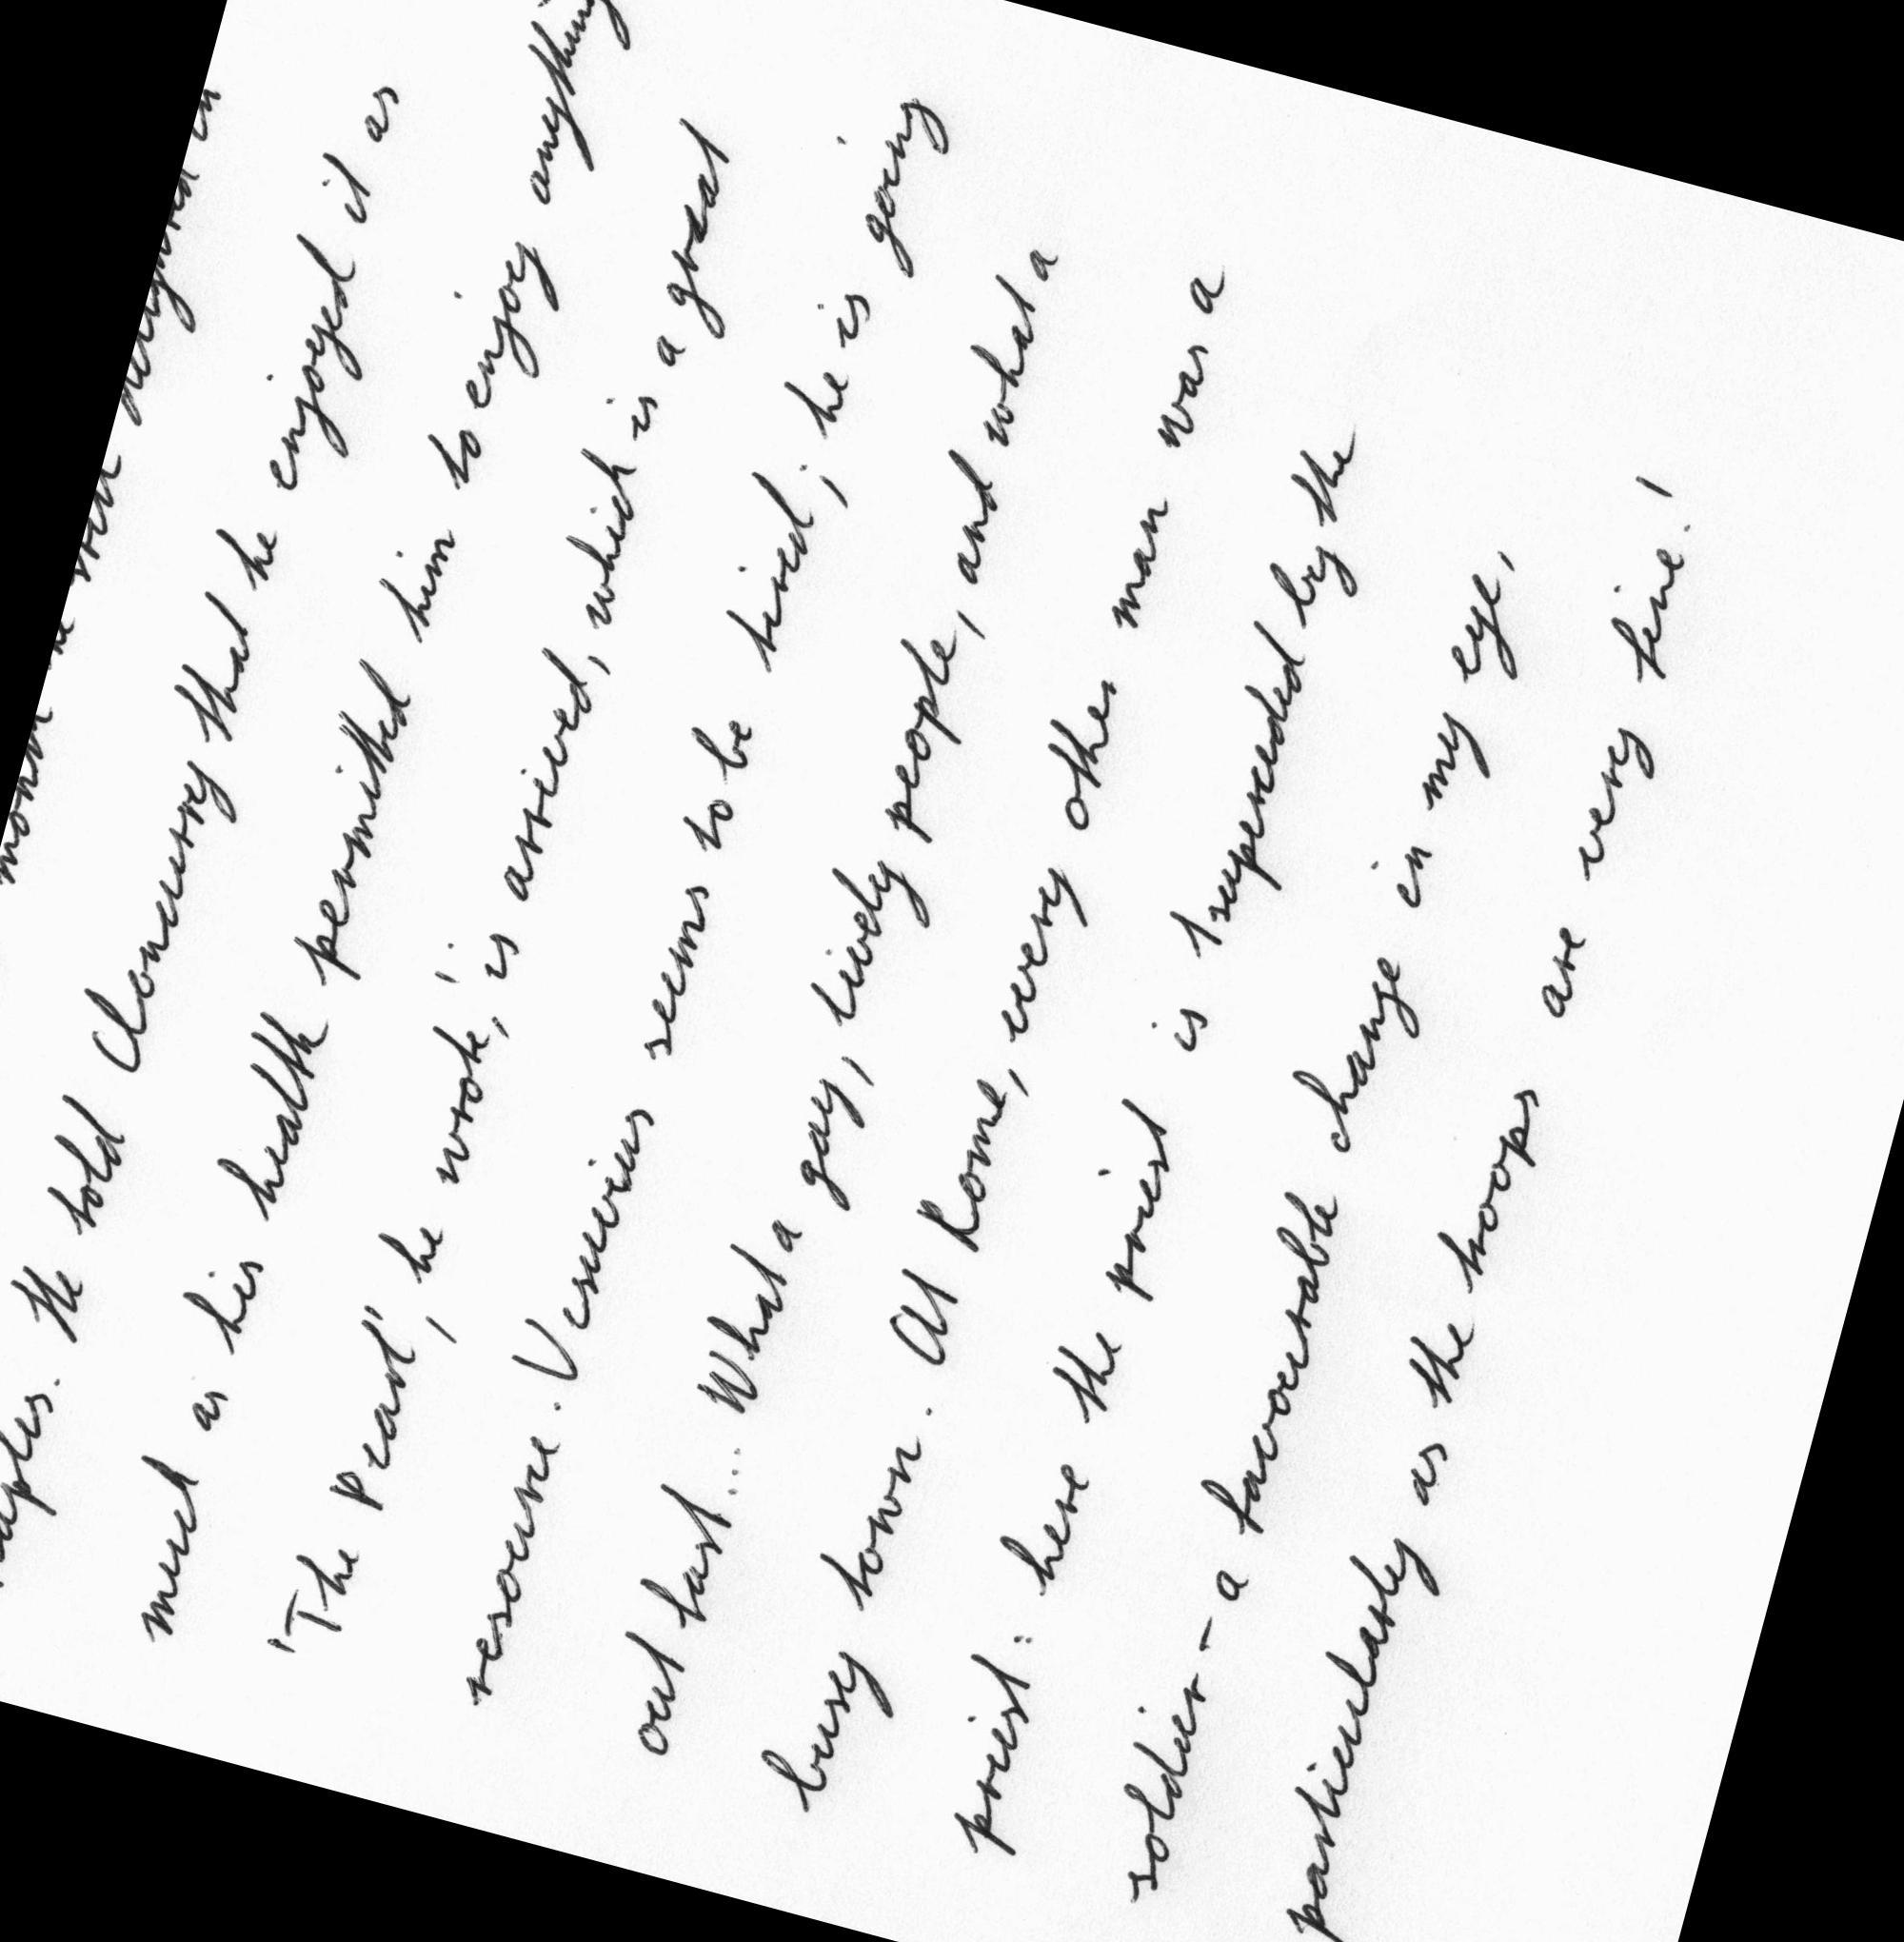 month he
Naples. He told Cloncurry that he enjoyed it as
much as his health permitted him to enjoy anything.
'The Pearl', he wrote, 'is arrived, which is a great
resource. Vesuvius seems to be tired; he is going
out fast... What a gay, lively people, and what a
busy town. At Rome, every other man was a
priest: here the priest is superseded by the
soldier - a favourable change in my eye,
particularly as the troops are very fine!